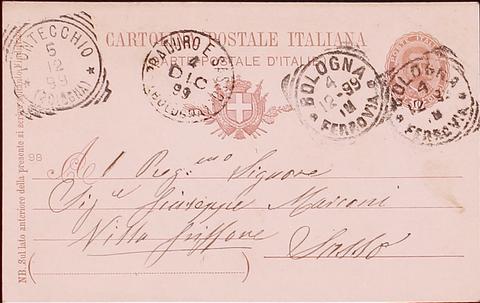 CARTOLINA POSTALE ITALIANA
CARTE POSTALE D'ITALIE
PONTECCHIO
5
12
99
(BOLOGNA)
PRADURO E SASSO
4
DIC
99
(BOLOGNA)
BOLOGNA
4
12-99
1M
FERROVIA
BOLOGNA
4
12-9
M
FERROVIA
98
Al Preg.mo Signore
Sig.e Giuseppe Marconi
Villa Griffone
Sasso
NB. Sul lato anteriore della presente si scrive